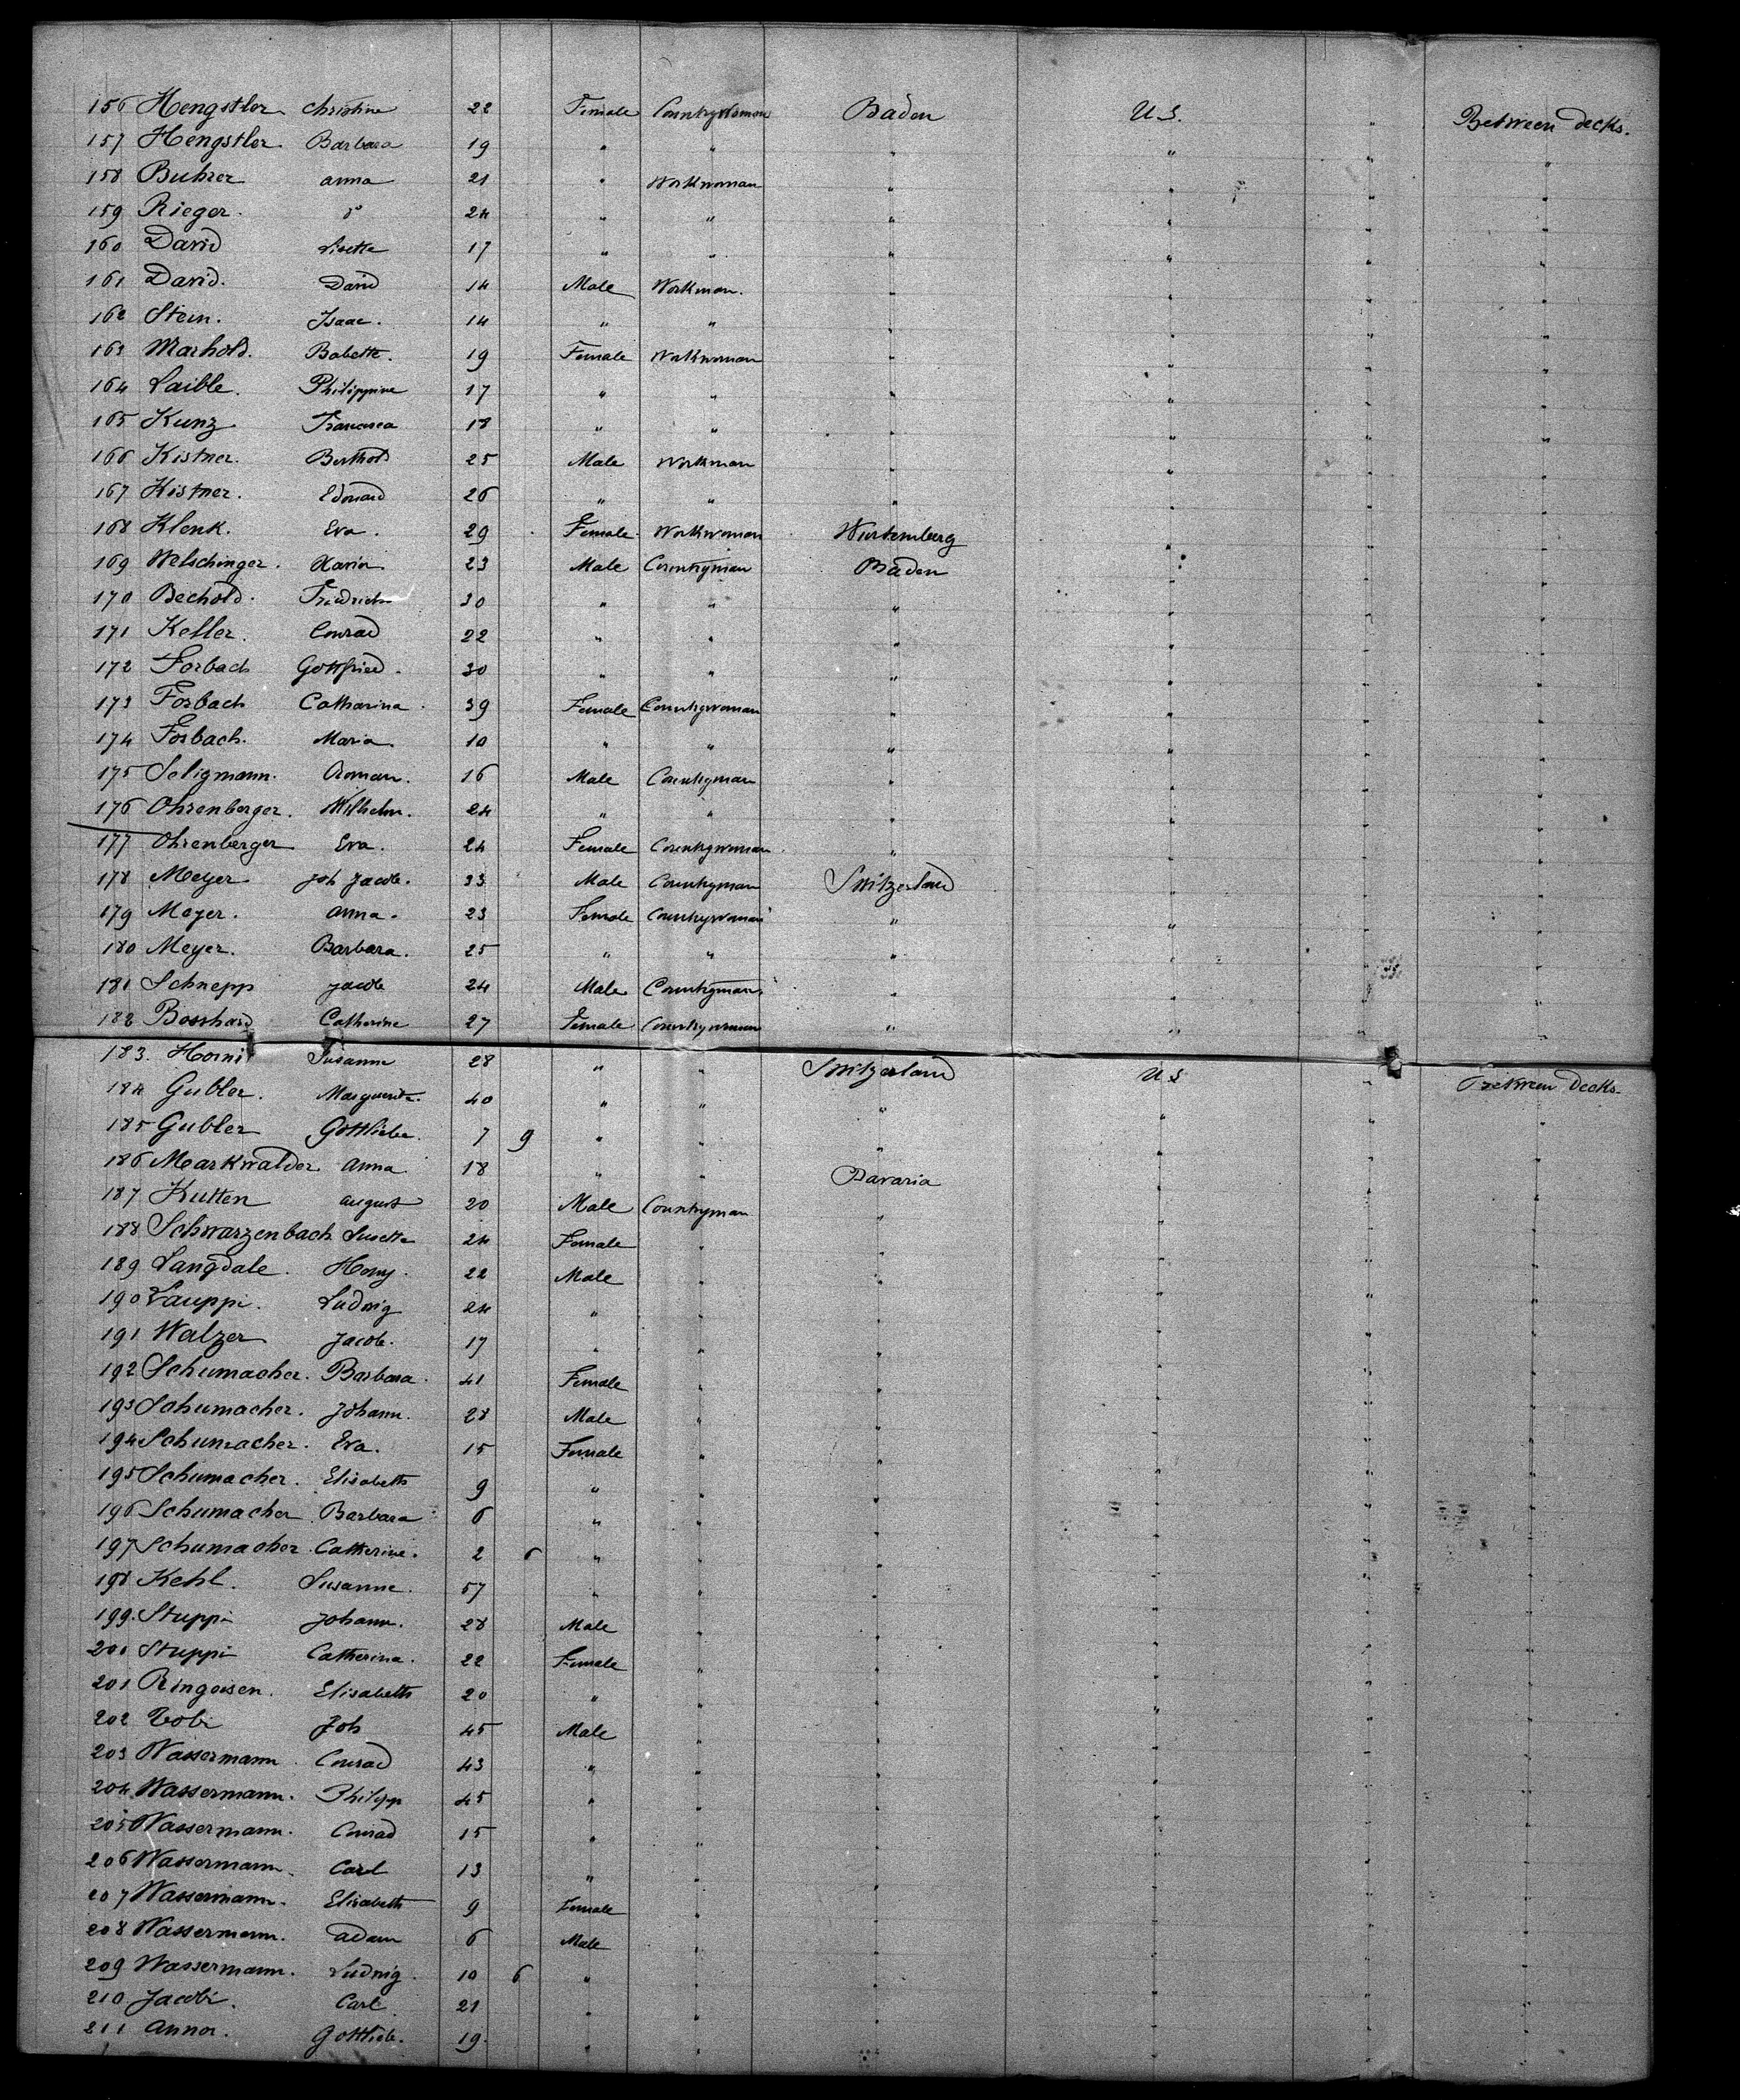 156 Hengstler Christine 22 Female Countrywoman Baden U.S. " Between decks.
157 Hengstler Barbara 19 " " " " " "
158 Buhrer anna 21 " Workwoman " " " "
159 Rieger. do 24 " " " " " "
160 David Lisette 17 " " " " " "
161 David. David 14 Male Workman. " " " "
162 Stein. Isaac. 14 " " " " " "
163 Marhold. Babette. 19 Female Workwoman " " " "
164 Laible. Philippine 17 " " " " " "
165 Kunz Francisca 18 " " " " " "
166 Kistner. Berthold 25 Male Workman " " " "
167 Kistner. Edouard 26 " " " " " "
168 Klenk. Eva. 29 Female Workwoman Wurtemberg " " "
169 Welschinger. Xavier 23 Male Countryman Baden " " "
170 Bechold. Friedrich 30 " " " " " "
171 Keller. Conrad 22 " " " " " "
172 Forbach Gottfried. 30 " " " " " "
173 Forbach Catharina. 39 Female Countrywoman " " " "
174 Forbach. Maria. 10 " " " " " "
175 Seligmann. Roman. 16 Male Countryman " " " "
176 Ohrenberger. Wilhelm. 24 " " " " " "
177 Ohrenberger Eva. 24 Female Countrywoman " " " "
178 Meyer Joh Jacob. 33 Male Countryman Switzerland " " "
179 Meyer. anna. 23 Female Countrywoman " " " "
180 Meyer. Barbara. 25 " " " " " "
181 Schnepp Jacob 24 Male Countryman " " " "
182 Bosshard Catherine 27 Female Countrywoman " " " "
183. Horni Susann 28 " " Switzerland U.S " Between decks.
184 Gubler. Marguerite. 40 " " " " " "
185 Gubler Gottliebe. 7 9 " " " " " "
186 Markwalder anna 18 " " Bavaria " " "
187 Kutten august 20 Male Countryman " " " "
188 Schwarzenbach Susette 24 Female " " " " "
189 Langdale. Henry. 22 Male " " " " "
190 Lauppi. Ludwig 24 " " " " " "
191 Walzer Jacob. 17 " " " " " "
192 Schumacher. Barbara. 41 Female " " " " "
193 Schumacher. Johann. 28 Male " " " " "
194 Schumacher. Eva. 15 Female " " " " "
195 Schumacher. Elisabeth 9 " " " " " "
196 Schumacher Barbara 6 " " " " " "
197 Schumacher. Catherine. 2 6 " " " " " "
198 Kehl. Susanne. 57 " " " " " "
199. Stuppi Johann. 28 Male " " " " "
200 Stuppi Catherina. 22 Female " " " " "
201 Ringeisen. Elisabeth 20 " " " " " "
202 Tobi Joh 45 Male " " " " "
203 Wassermann Conrad 43 " " " " " "
204 Wassermann. Philipp 45 " " " " " "
205 Wassermann. Conrad 15 " " " " " "
206 Wassermann. Carl 13 " " " " " "
207 Wassermann. Elisabeth 9 Female " " " " "
208 Wassermann. adam 6 Male " " " " "
209 Wassermann. Ludwig. 10 6 " " " " " "
210 Jacobi. Carl 21 " " " " " "
211 Annor. Gottlieb. 19. " " " " " "